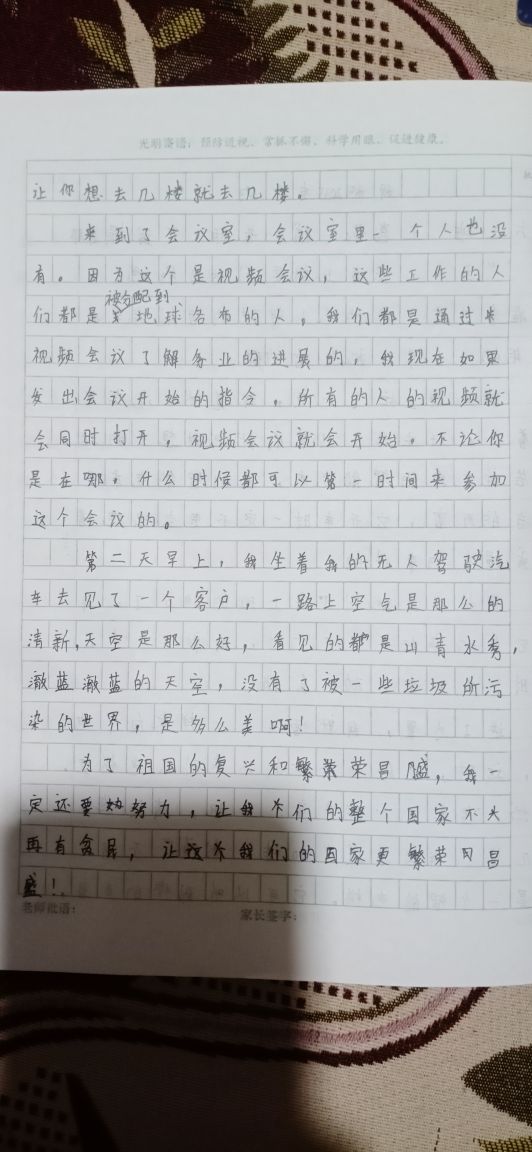 光明寄语：预防近视、常抓不懈、科学用眼、促进健康。
让你想去几楼就去几楼。
来到了会议室，会议室里一个人也没
有。因为这个是视频会议，这些工作的人
被分配到
们都是地球各布的人，我们都是通过来
视频会议了解务业的进展的，我现在如果
发出会议开始的指令，所有的人的视频就
会同时打开，视频会议就会开始。不论你
是在哪，什么时候都可以第一时间来参加
这个会议的。
第二天早上，我坐着我的无人驾驶汽
车去见了一个客户，一路上空气是那么的
清新，天空是那么好，看见的都是山青水秀，
澈蓝澈蓝的天空，没有了被一些垃圾所污
染的世界，是多么美啊！
为了祖国的复兴和繁荣昌盛，我一
定还要努力，让我们的整个国家不
再有贫民，让我们的国家更繁荣昌
盛！
老师批语： 家长签字：